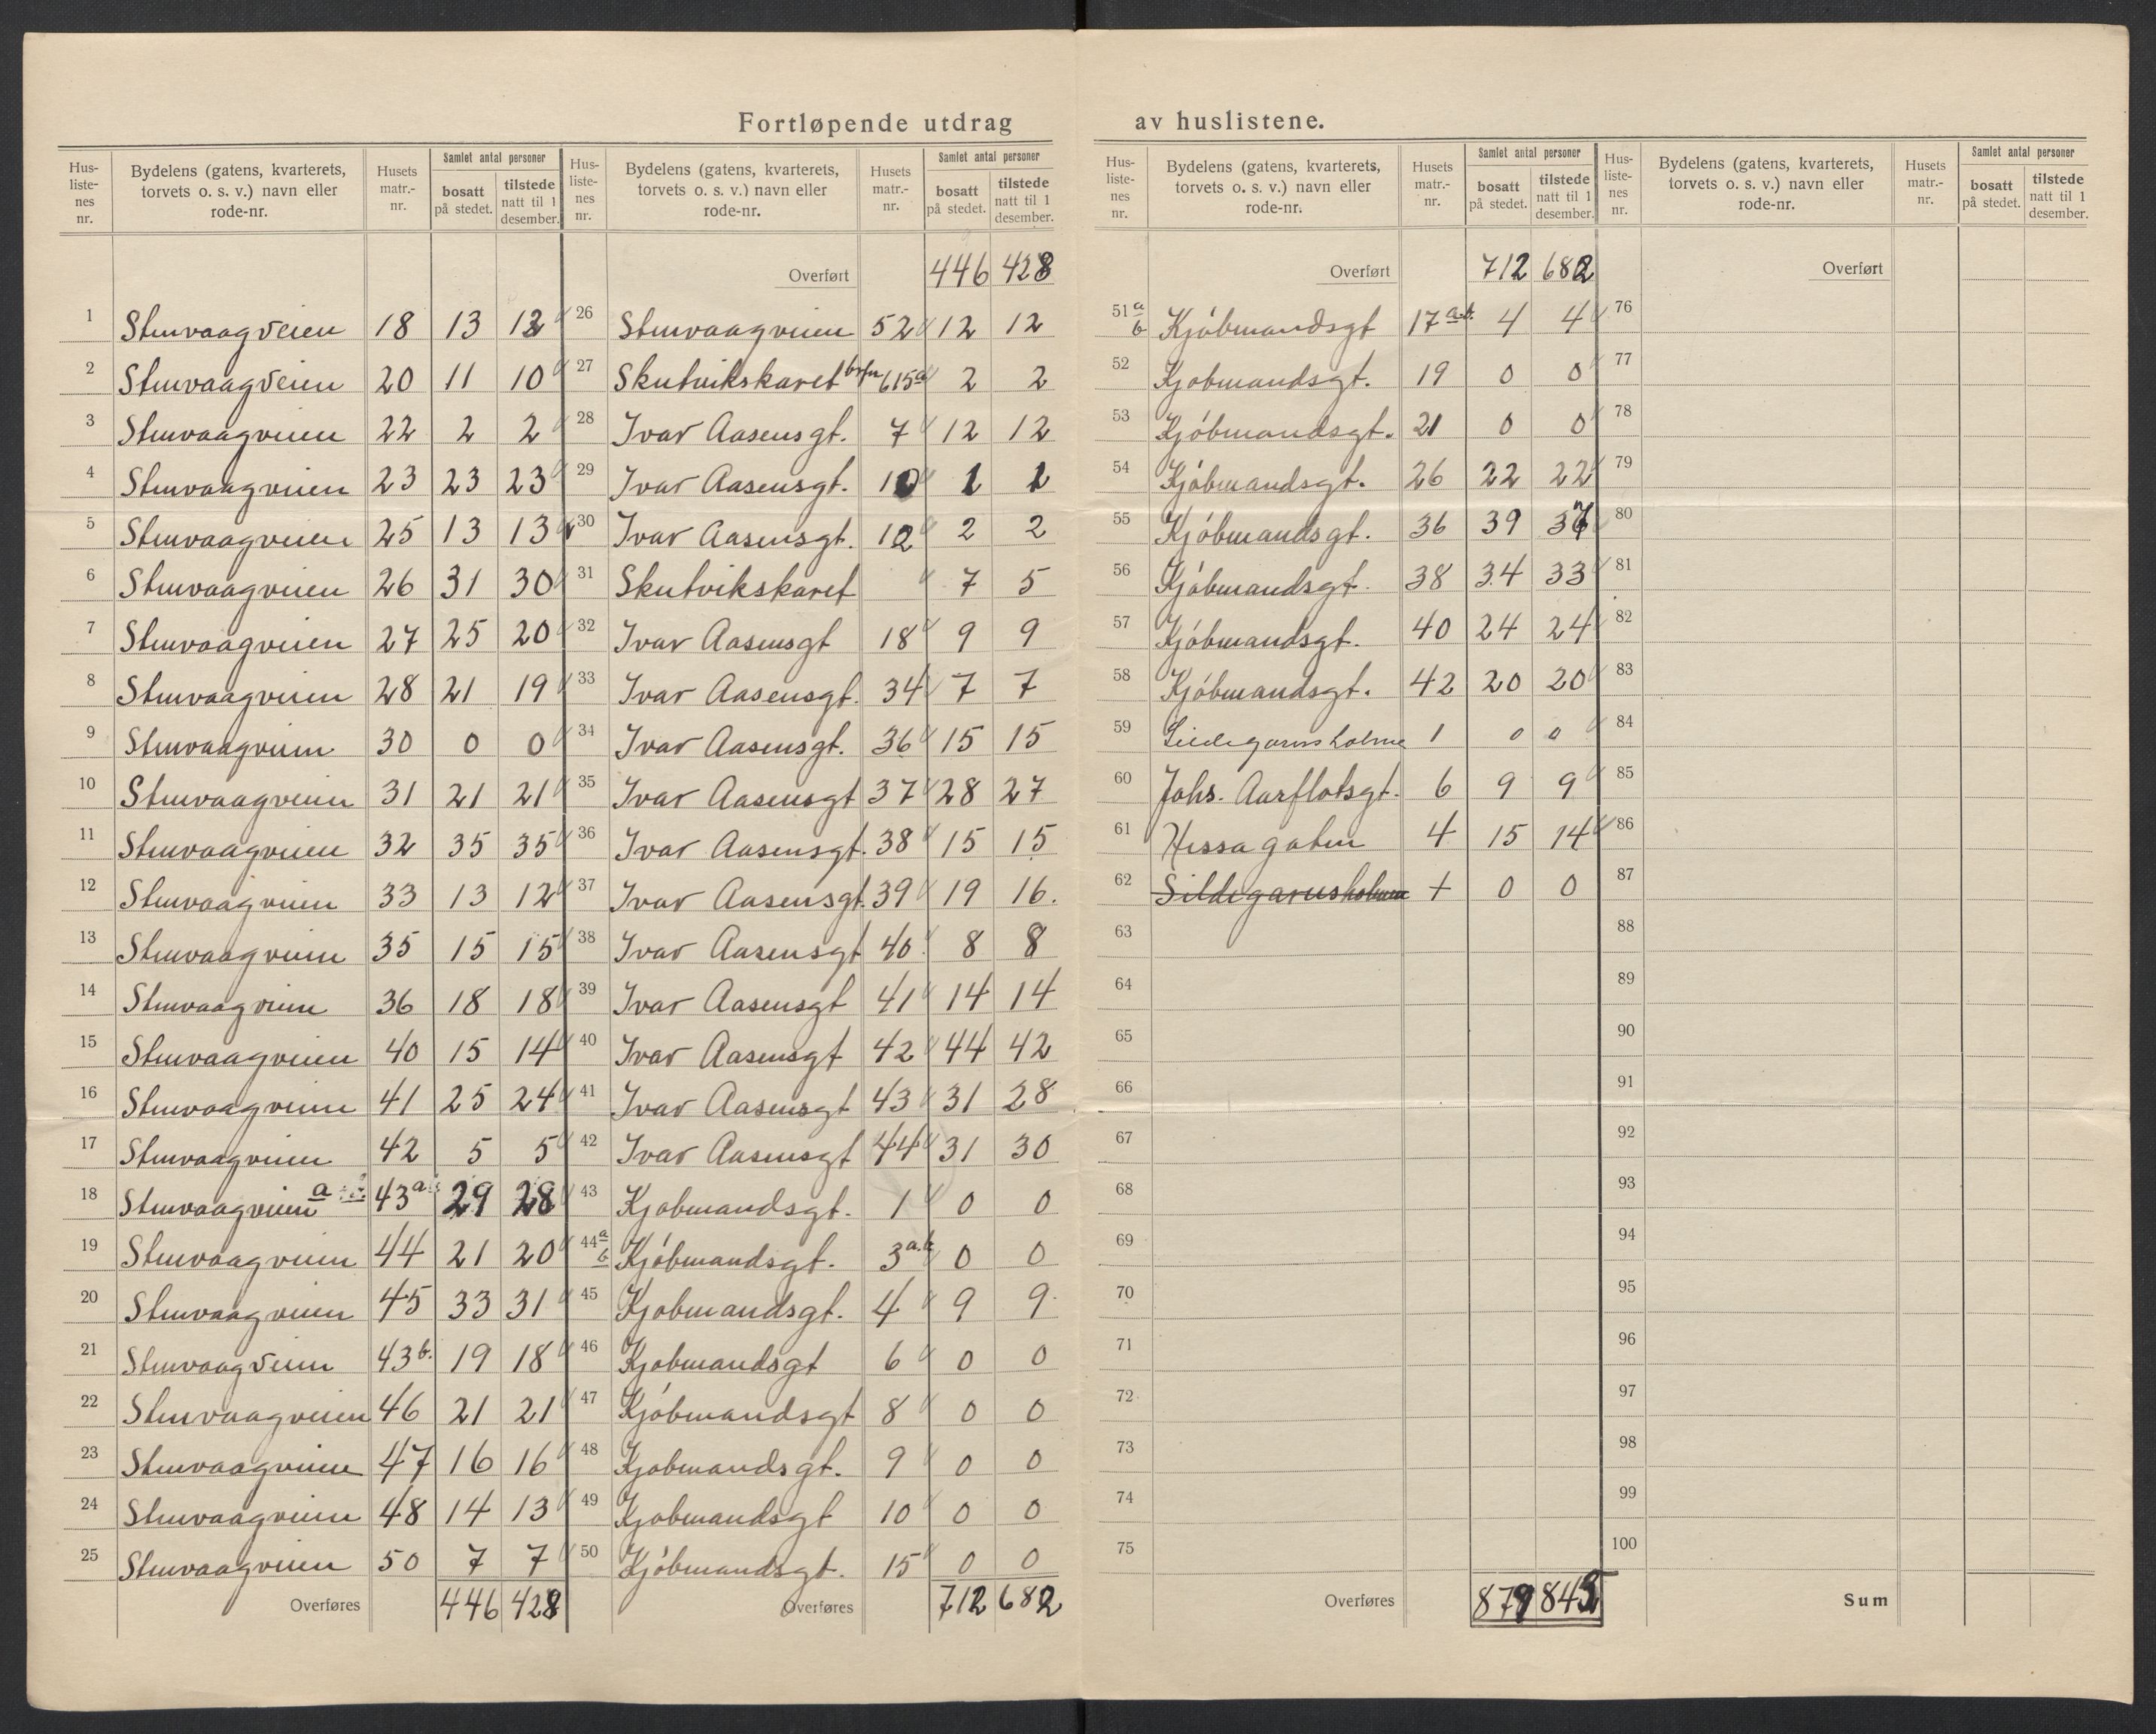 Fortløpende utdrag av huslistene.
Hus-liste-nes nr. | Bydelens (gatens, kvarterets, torvets o. s. v.) navn eller rode-nr. | Husets matr.-nr. | Samlet antal personer bosatt på stedet. | tilstede natt til 1 desember.
1 Stenvaagveien 18 13 12
2 Stenvaagveien 20 11 10
3 Stenvaagveien 22 2 2
4 Stenvaagveien 23 23 23
5 Stenvaagveien 25 13 13
6 Stenvaagveien 26 31 30
7 Stenvaagveien 27 25 20
8 Stenvaagveien 28 21 19
9 Stenvaagveien 30 0 0
10 Stenvaagveien 31 21 21
11 Stenvaagveien 32 35 35
12 Stenvaagveien 33 13 12
13 Stenvaagveien 35 15 15
14 Stenvaagveien 36 18 18
15 Stenvaagveien 40 15 14
16 Stenvaagveien 41 25 24
17 Stenvaagveien 42 5 5
18 Stenvaagveien a 43a 29 28
19 Stenvaagveien 44 21 20
20 Stenvaagveien 45 33 31
21 Stenvaagveien 43b. 19 18
22 Stenvaagveien 46 21 21
23 Stenvaagveien 47 16 16
24 Stenvaagveien 48 14 13
25 Stenvaagveien 50 7 7
Overføres 446 428
Hus-liste-nes nr. | Bydelens (gatens, kvarterets, torvets o. s. v.) navn eller rode-nr. | Husets matr.-nr. | Samlet antal personer bosatt på stedet. | tilstede natt til 1 desember.
Overført 446 428
26 Stenvaagveien 52 12 12
27 Skutvikskaret 615a 2 2
28 Ivar Aasensgt. 7 12 12
29 Ivar Aasensgt. 10 1 1
30 Ivar Aasensgt. 12 2 2
31 Skutvikskaret 7 5
32 Ivar Aasensgt 18 9 9
33 Ivar Aasensgt. 34 7 7
34 Ivar Aasensgt. 36 15 15
35 Ivar Aasensgt 37 28 27
36 Ivar Aasensgt. 38 15 15
37 Ivar Aasensgt. 39 19 16.
38 Ivar Aasensgt 40 8 8
39 Ivar Aasensgt 41 14 14
40 Ivar Aasensgt 42 44 42
41 Ivar Aasensgt 43 31 28
42 Ivar Aasensgt 44 31 30
43 Kjobmandsgt. 1 0 0
44a b Kjóbmandsgt. 3a.b 0 0
45 Kjobmandsgt. 4 9 9
46 Kjobmandsgt 6 0 0
47 Kjóbmandsgt 8 0 0
48 Kjobmandsgt. 9 0 0
49 Kjobmandsgt 10 0 0
50 Kjóbmandsgt. 15 0 0
Overføres 712 682
Hus-liste-nes nr. | Bydelens (gatens, kvarterets, torvets o. s. v.) navn eller rode-nr. | Husets matr.-nr. | Samlet antal personer bosatt på stedet. | tilstede natt til 1 desember.
Overført 712 682
51a b Kjóbmandsgt 17a.b. 4 4
52 Kjobmandsgt. 19 0 0
53 Kjóbmandsgt. 21 0 0
54 Kjóbmandsgt. 26 22 22
55 Kjóbmandsgt. 36 39 37
56 Kjóbmandsgt. 38 34 33
57 Kjóbmandsgt. 40 24 24
58 Kjóbmandsgt. 42 20 20
59 1 0 0
60 Johs. Aarflotsgt. 6 9 9
61 Hessagaten 4 15 14
62 Sildegarnsholmen + 0 0
63
64
65
66
67
68
69
70
71
72
73
74
75
Overføres 879 845
Hus-liste-nes nr. | Bydelens (gatens, kvarterets, torvets o. s. v.) navn eller rode-nr. | Husets matr.-nr. | Samlet antal personer bosatt på stedet. | tilstede natt til 1 desember.
Overført
76
77
78
79
80
81
82
83
84
85
86
87
88
89
90
91
92
93
94
95
96
97
98
99
100
Sum